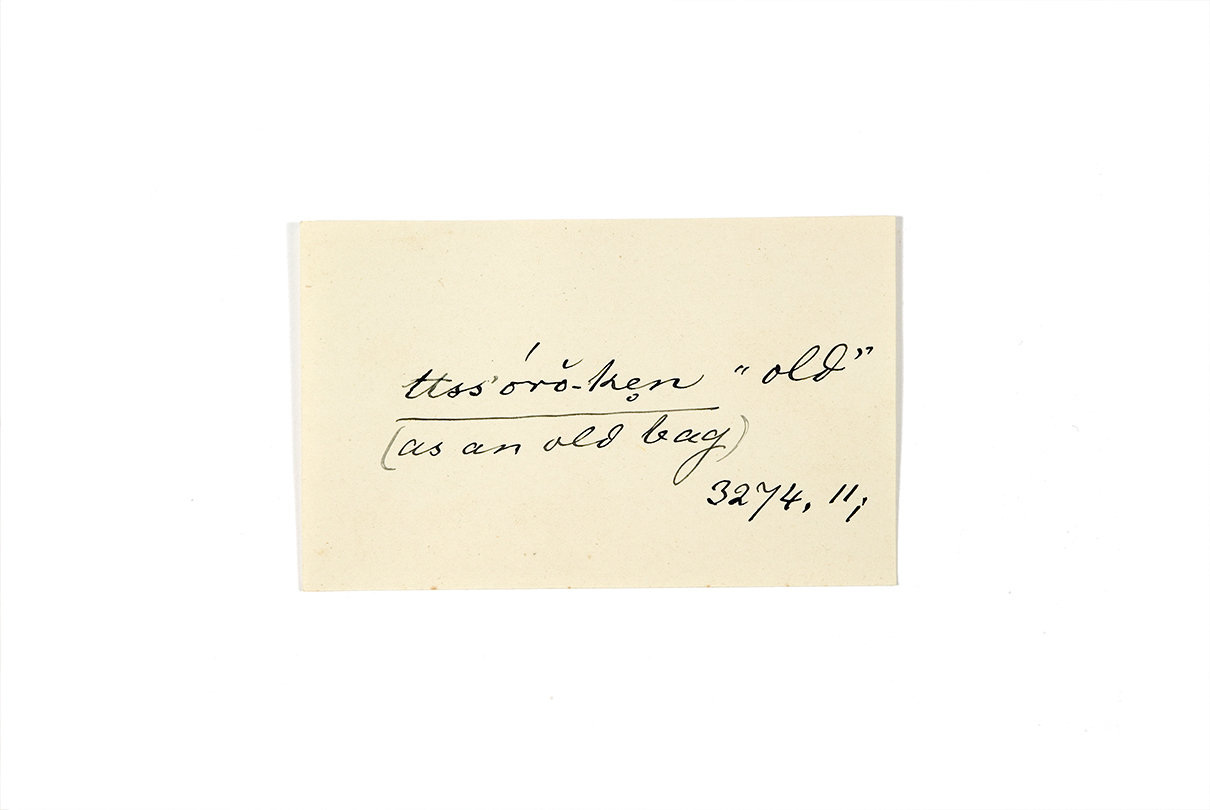 ttss'órŏ-ken̥ "old"
(as an old bag)
3274, 11;